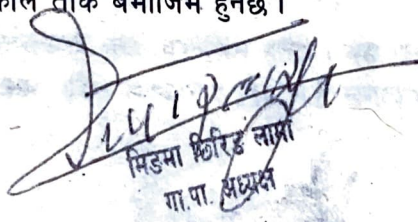 तोकि बमोजिम हुनेछ।
मिङमा छिरिङ लामा
गा.पा. अध्यक्ष